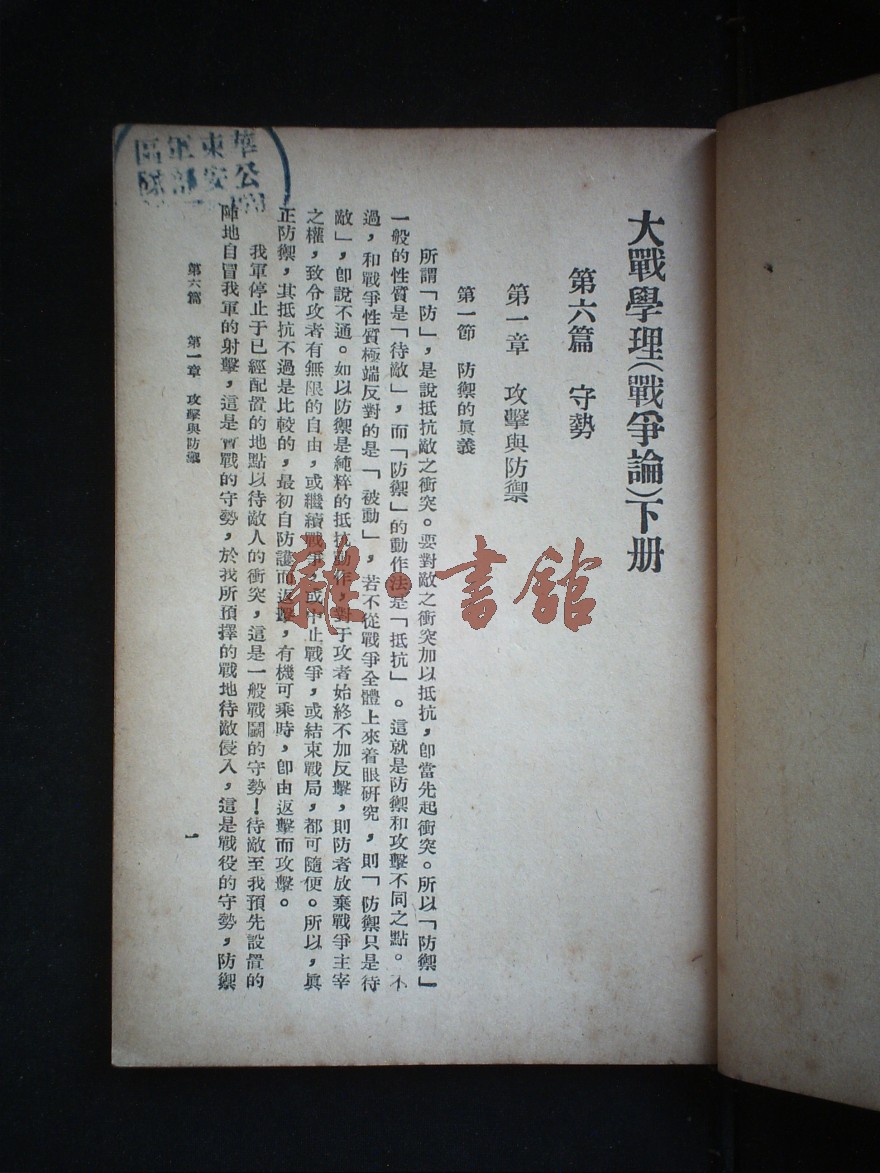 大戰學理(戰爭論)下册
第六篇　守勢
第一章　攻擊與防禦
第一節　防禦的眞義
所謂「防」，是說抵抗敵之衝突。要對敵之衝突加以抵抗，卽當先起衝突。所以「防禦」
一般的性質是「待敵」，而「防禦」的動作法是「抵抗」。這就是防禦和攻擊不同之點。不
過，和戰爭性質極端反對的是「被動」，若不從戰爭全體上來着眼硏究，則「防禦只是待
敵」，卽說不通。如以防禦是純粹的抵抗動作，對于攻者始終不加反擊，則防者放棄戰爭主宰
之權，致令攻者有無限的自由，或繼續戰爭，或中止戰爭，或結束戰局，都可隨便。所以，眞
正防禦，其抵抗不過是比較的，最初自防護而返擊，有機可乘時，卽由返擊而攻擊。
我軍停止于已經配置的地點以待敵人的衝突，這是一般戰鬭的守勢！待敵至我預先設置的
陣地自冒我軍的射擊，這是會戰的守勢，於找所預擇的戰地待敵侵入，這是戰役的守勢，防禦
第六篇　第一章　攻擊與防禦
一
華東軍區
公安部隊
雜·書館